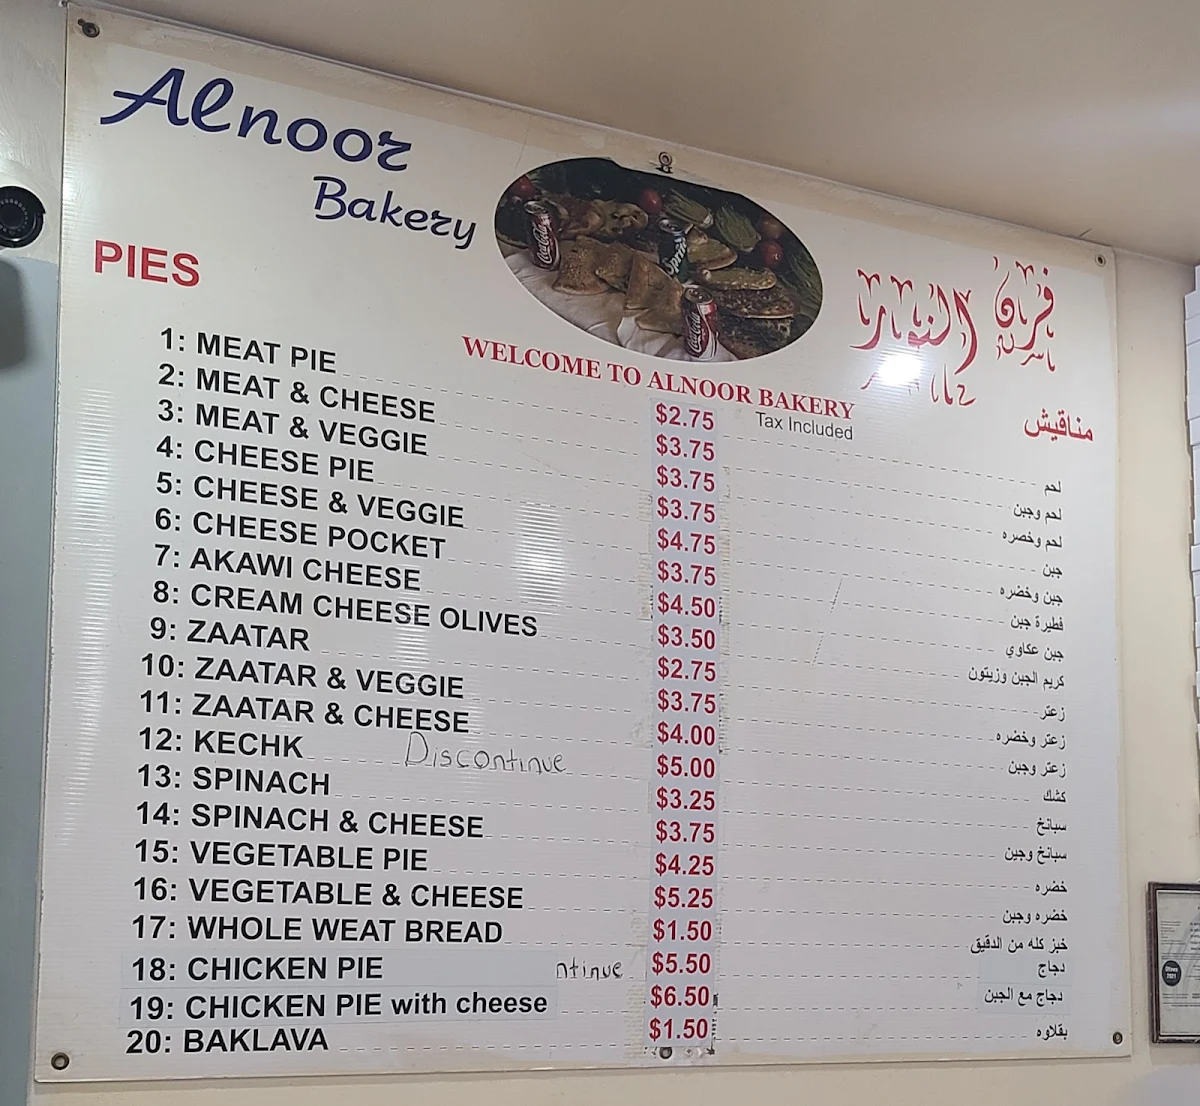 Alnoor
Bakery
فرن النور
Coca-Cola
Sprite
Coca-Cola
PIES
WELCOME TO ALNOOR BAKERY
Tax Included
مناقيش
1: MEAT PIE $2.75 لحم
2: MEAT & CHEESE $3.75 لحم وجبن
3: MEAT & VEGGIE $3.75 لحم وخصره
4: CHEESE PIE $3.75 جبن
5: CHEESE & VEGGIE $4.75 جبن وخضره
6: CHEESE POCKET $3.75 فطيرة جبن
7: AKAWI CHEESE $4.50 جبن عكاوي
8: CREAM CHEESE OLIVES $3.50 كريم الجبن وزيتون
9: ZAATAR $2.75 زعتر
10: ZAATAR & VEGGIE $3.75 زعتر وخضره
11: ZAATAR & CHEESE $4.00 زعتر وجبن
12: KECHK Discontinue $5.00 كشك
13: SPINACH $3.25 سبانخ
14: SPINACH & CHEESE $3.75 سبانخ وجبن
15: VEGETABLE PIE $4.25 خضره
16: VEGETABLE & CHEESE $5.25 خضره وجبن
17: WHOLE WEAT BREAD $1.50 خبز كله من الدقيق
18: CHICKEN PIE ntinue $5.50 دجاج
19: CHICKEN PIE with cheese $6.50 دجاج مع الجبن
20: BAKLAVA $1.50 بقلاوه